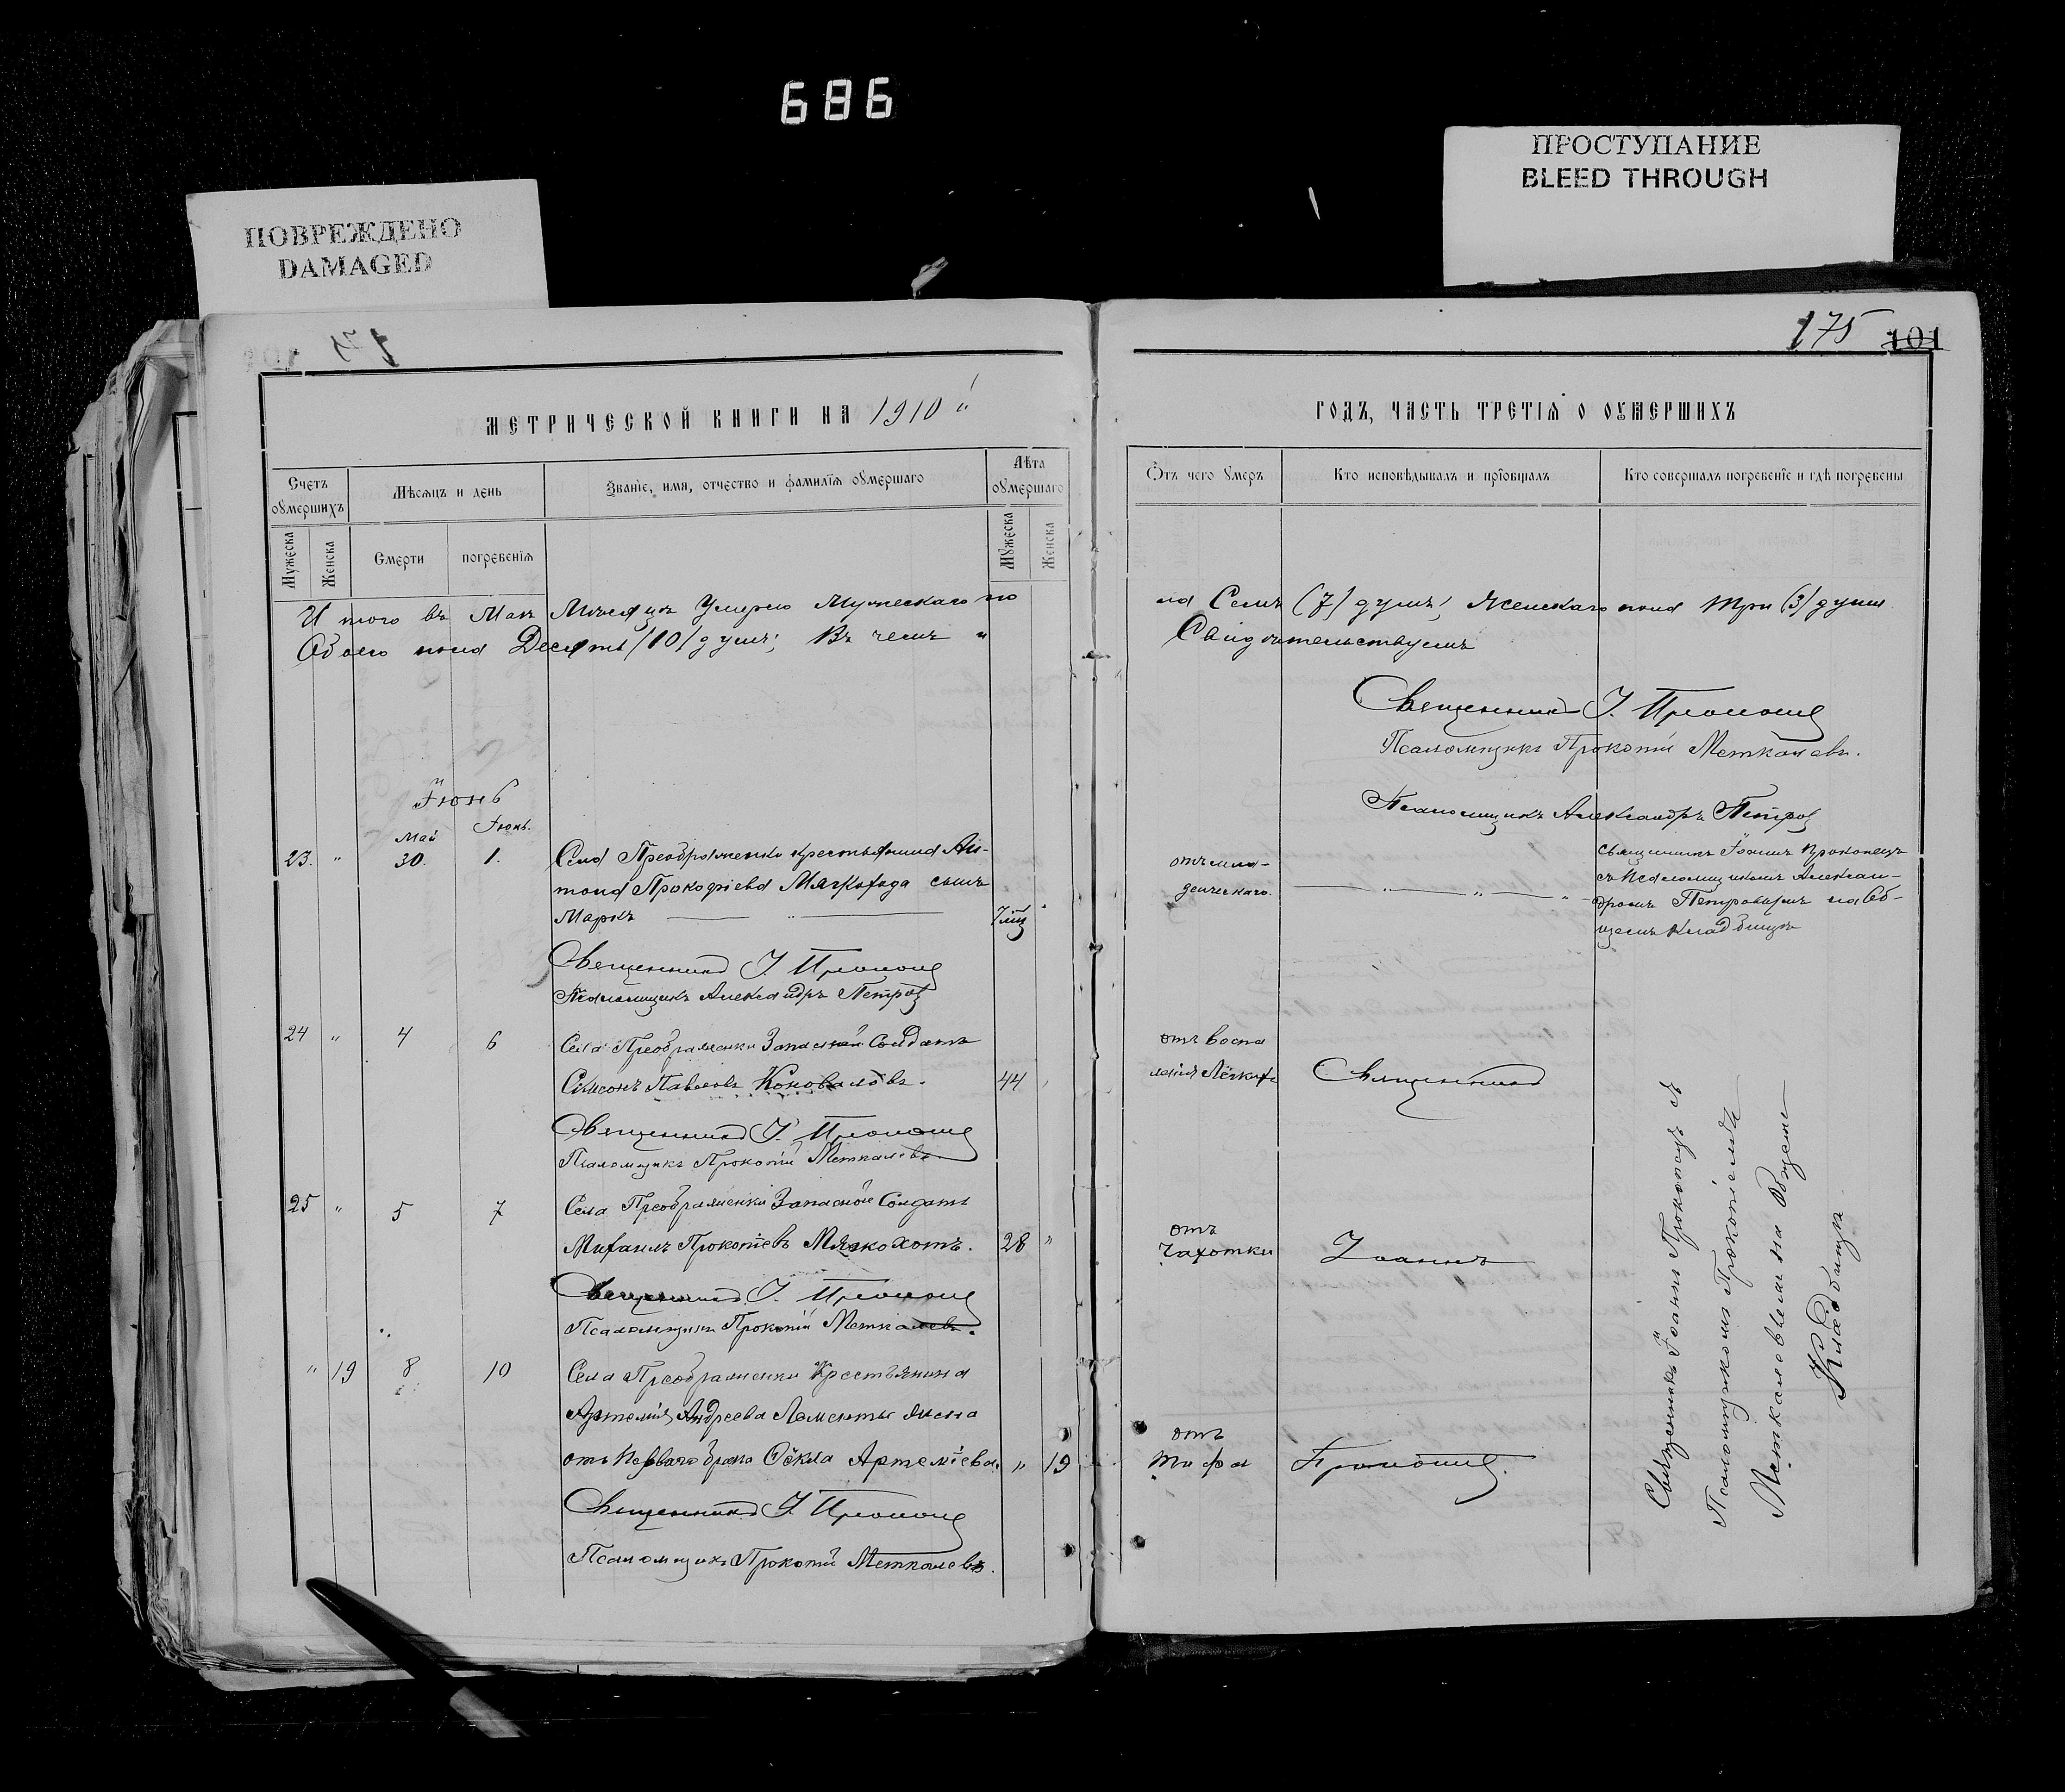 686
ПОВРЕЖДЕНО
DAMAGED
ПРОСТУПАНИЕ
BLEED THROUGH
175 101
МЕТРИЧЕСКОЙ КНИГИ НА 1910
Счетъ оумершихъ
Мѣсяцъ и день
Званіе, имя, отчество и фамилія оумершаго
Лѣта оумершаго
Мужеска
Женска
Смерти
погребенія
Мужеска
Женска
И того въ Маѣ Мѣсяцѣ Умерло Мужескаго по
Обоего пола Десять (10) душъ; Въ чемъ
Іюнь
Май Іюнь.
23. " 30. 1. Села Преображенки крестьянина Ан-
тона Прокофіева Мягкохода сынъ
Маркъ — " — 7 мц
Священникъ І. Прокопецъ
Псаломщикъ Александръ Петровъ
24 " 4 6 Села Преображенки Запасной Солдатъ
Симеонъ Павловъ Коноваловъ. 44
Священникъ І. Прокопецъ
Псаломщикъ Прокопій Меткалевъ.
25 " 5 7 Села Преображенки Запасной Солдатъ
Михаилъ Прокопіевъ Мягкоходъ. 28 "
Священникъ І. Прокопецъ
Псаломщикъ Прокопій Меткалевъ.
" 19 8 10 Села Преображенки Крестьянина
Артемія Андреева Лементы жена
отъ Перваго брака Ѳёкла Артеміева. " 19
Священникъ І. Прокопецъ
Псаломщикъ Прокопій Меткалевъ.
ГОДЪ, ЧАСТЬ ТРЕТІЯ О ОУМЕРШИХЪ
Отъ чего умеръ
Кто исповѣдывалъ и пріобщалъ
Кто совершалъ погребеніе и гдѣ погребены
ла Семь (7) душъ, Женскаго пола Три (3) души
Свидѣтельствуемъ
Священникъ І. Прокопецъ
Псаломщикъ Прокопій Меткалевъ.
Псаломщикъ Александръ Петровъ
отъ мла-
денческаго. — " — " — "
Священникъ Іоаннъ Прокопецъ
съ Псаломщикомъ Алексан-
дромъ Петровымъ на Об-
щемъ Кладбищѣ
отъ воспа
ленія Лёгкихъ
Священникъ
отъ
Чахотки
Іоаннъ
отъ
Тифа
Прокопецъ.
Священникъ Іоаннъ Прокопецъ съ
Псаломщикомъ Прокопіемъ
Меткалевымъ на Общемъ
Кладбищѣ